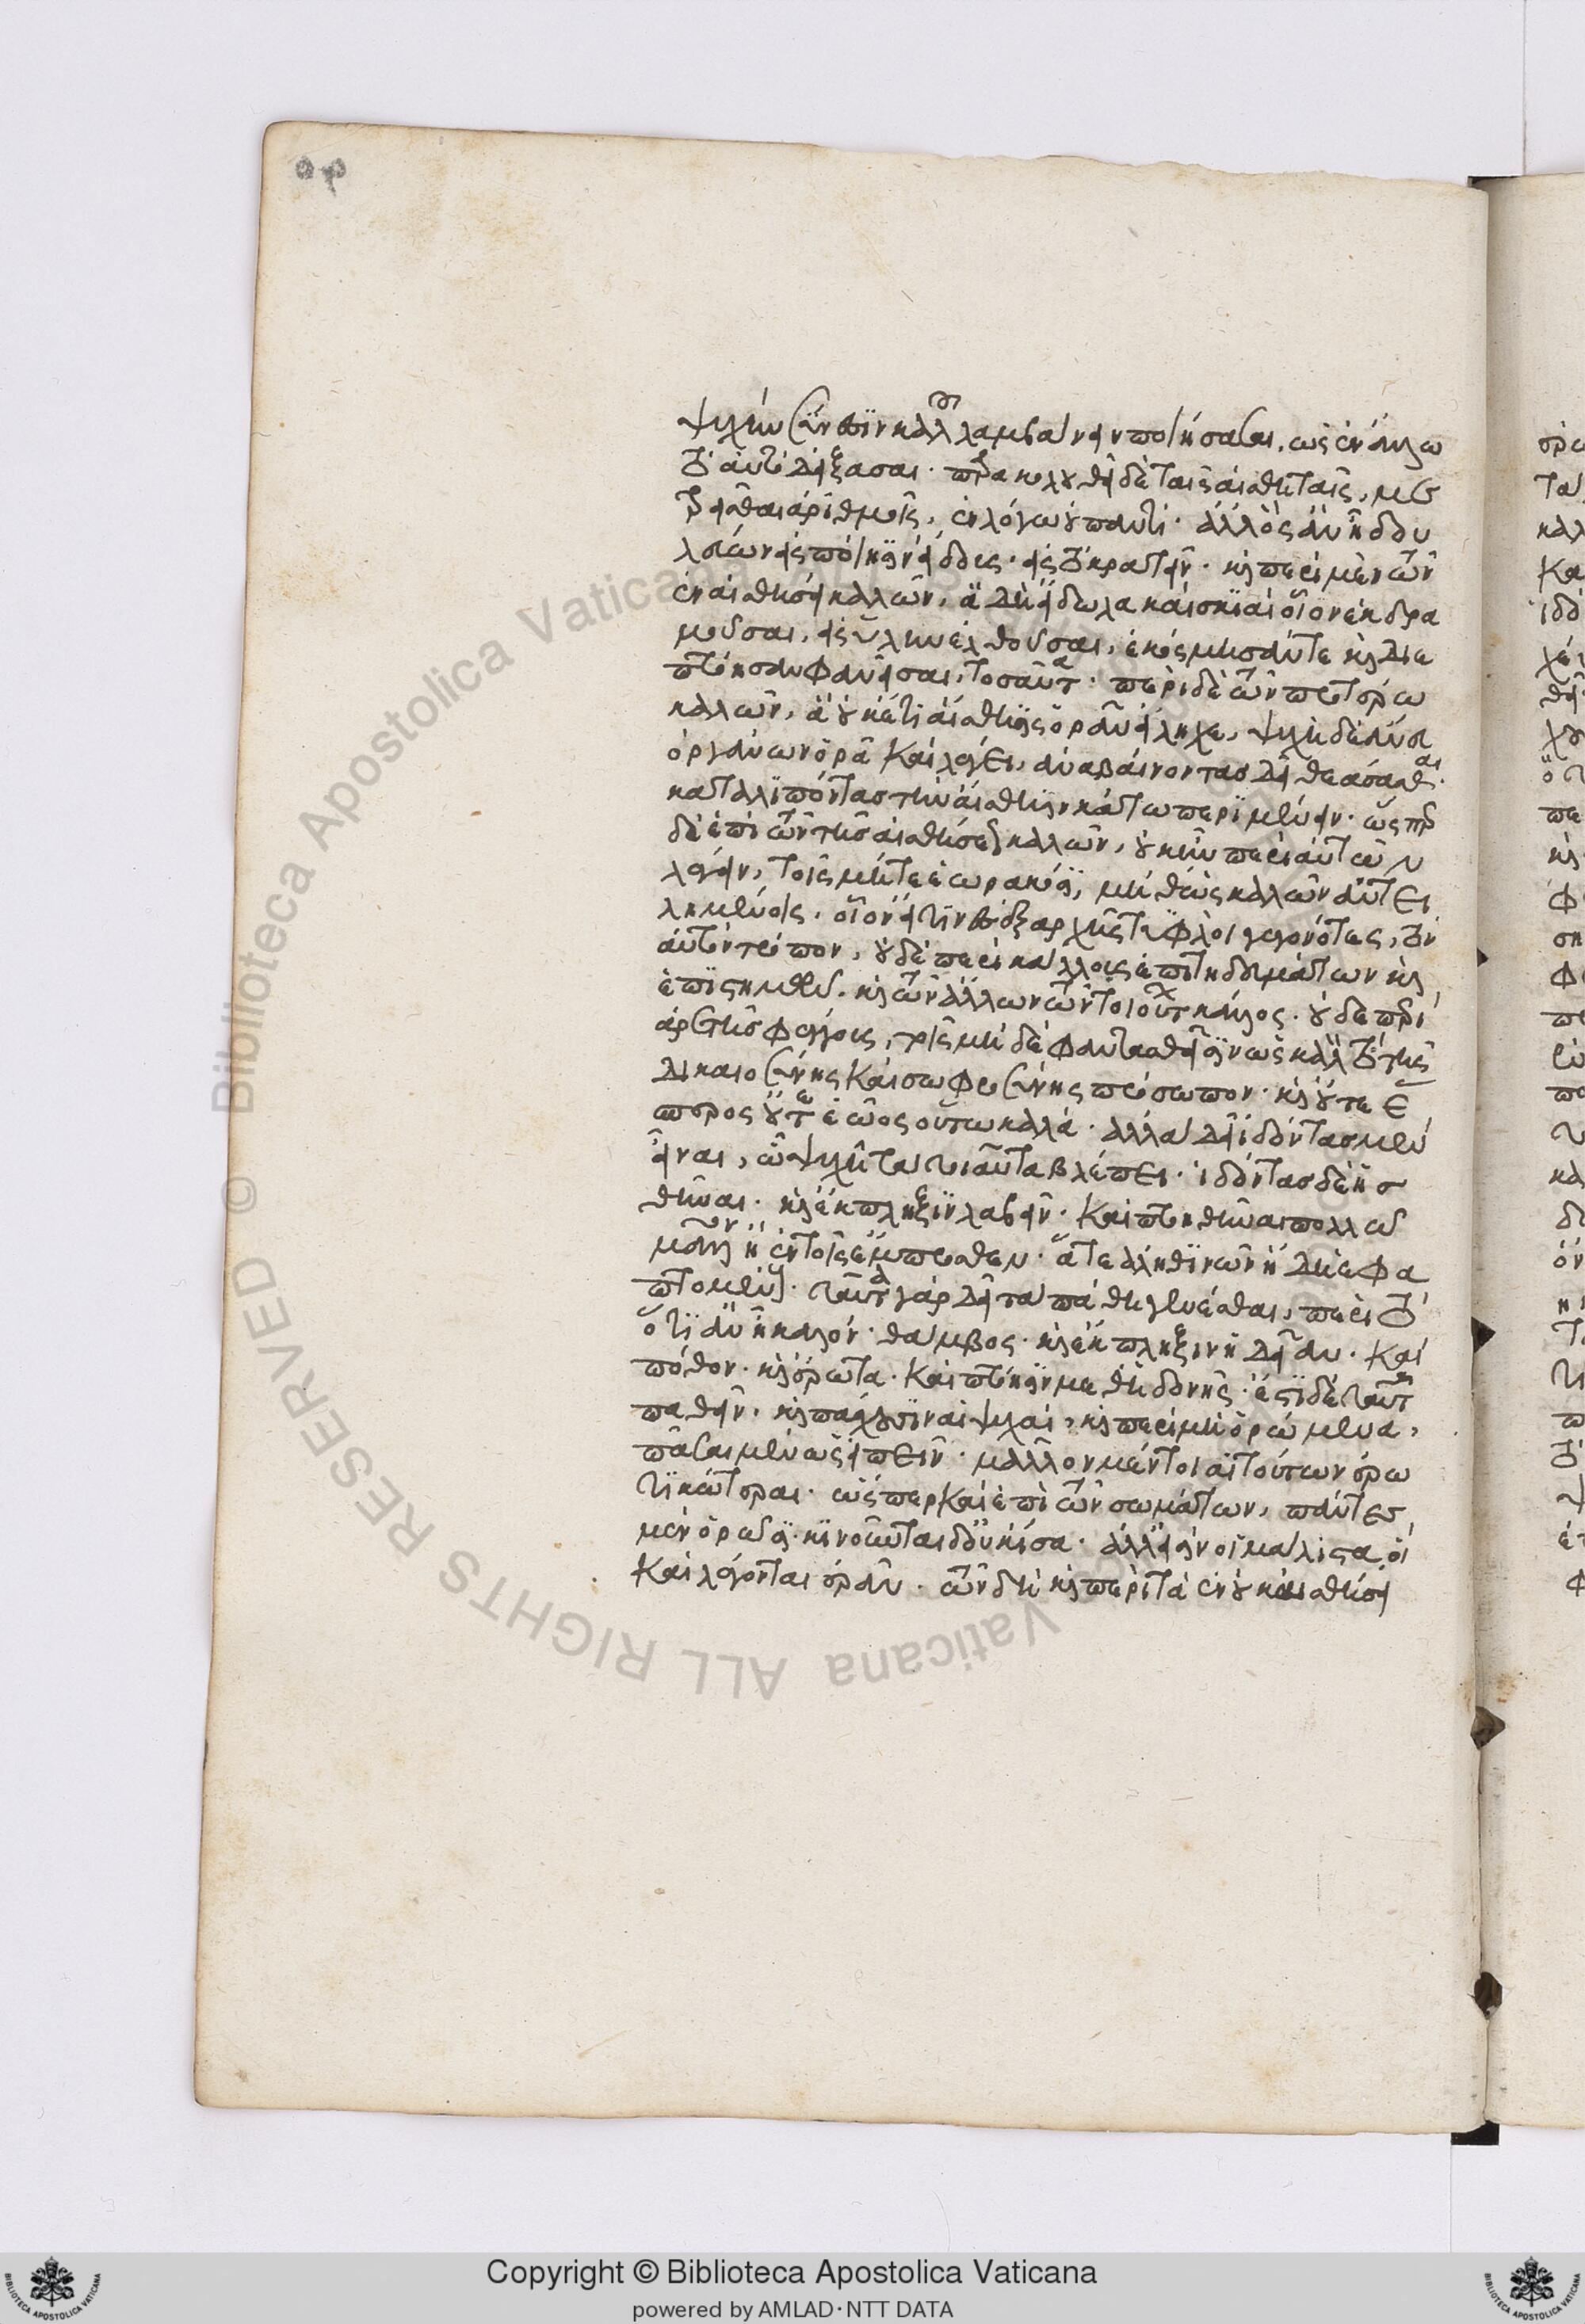 ψυχὴν σύνεσιν καλοῦ λαμβάνειν ποιήσασαι, ὡς ἐν ἄλλω
τὸ αὐτὸ δείξασαι. παρακολουθεῖ δὲ ταῖς αἰσθηταῖς, με
τρεῖσθαι ἀριθμοῖς, ἐν λόγω οὐ παντί. ἀλλ' ὃς ἂν ἦ δου
λεύων εἰς ποίησιν εἴδους. εἰς τὸ κρατεῖν. καὶ περὶ μὲν τῶν
ἐν αἰσθήσει καλῶν, ἃ δὴ εἴδωλα καὶ σκιαὶ οἷον ἐκδρα
μοῦσαι, εἰς ὕλην ἐλθοῦσαι, ἐκόσμησάν τε καὶ διε
πτόησαν φανεῖσαι, τοσαῦτα. περὶ δὲ τῶν προσωτέρω
καλῶν, ἃ οὐκέτι αἴσθησις ὁρᾶν εἴληχε, ψυχὴ δὲ ἄνευ
ὀργάνων ὁρᾶ καὶ λέγει, ἀναβαίνοντας δεῖ θεάσασθαι.
καταλιπόντας τὴν αἴσθησιν κάτω περιμένειν. ὥσπερ
δὲ ἐπὶ τῶν τῆς αἰσθήσεως καλῶν, οὐκ ἦν περὶ αὐτῶν
λέγειν, τοῖς μήτε ἑωρακόσι, μήθ' ὡς καλῶν ἀντει
λημμένοις, οἷον εἴ τινες ἐξ ἀρχῆς τυφλοὶ γεγονότες, τὸν
αὐτὸν τρόπον, οὐδὲ περὶ κάλλους ἐπιτηδευμάτων καὶ
ἐπιστημῶν. καὶ τῶν ἄλλων τῶν τοιούτων κάλλος. οὐδὲ περὶ
ἀρετῆς φέγγους, τοῖς μηδὲ φαντασθεῖσιν ὡς καλὸν τὸ τῆς
δικαιοσύνης καὶ σωφροσύνης πρόσωπον. καὶ οὔτε ἕ
σπερος οὔτε ἑῶος οὕτω καλά. ἀλλὰ δεῖ ἰδόντας μὲν
εἶναι, ὧ ψυχὴ τὰ τοιαῦτα βλέπει. ἰδόντας δὲ ἡσ
θῆναι. καὶ ἔκπληξιν λαβεῖν. καὶ πτοηθῆναι πολλῶ
μᾶλλον ἢ ἐν τοῖς ἔμπροσθεν. ἅτε ἀληθινῶν ἤδη ἐφα
πτομένους. ταῦτα γὰρ δεῖ τὰ πάθη γενέσθαι, περὶ τὸ
ὅτι ἂν ἦ καλόν. θάμβος. καὶ ἔκπληξιν ἡδεῖαν. καὶ
πόθον. καὶ ἔρωτα. καὶ πτόησιν μεθ' ἡδονῆς. ἔστι δὲ ταῦτα
παθεῖν. καὶ πάσχουσιν αἱ ψυχαί, καὶ περὶ μὴ ὁρώμενα,
πᾶσαι μὲν ὡς εἰπεῖν. μᾶλλον μέντοι αἱ τούτων ἐρω
τικώτεραι. ὥσπερ καὶ ἐπὶ τῶν σωμάτων, πάντες
μὲν ὁρῶσι. κεντοῦνται δ' οὐκ ἴσα. ἀλλ' εἰσὶν οἳ μάλιστα, οἳ
καὶ λέγονται ἐρᾶν. τῶν δὴ καὶ περὶ τὰ ἐν οὐκ αἰσθήσει